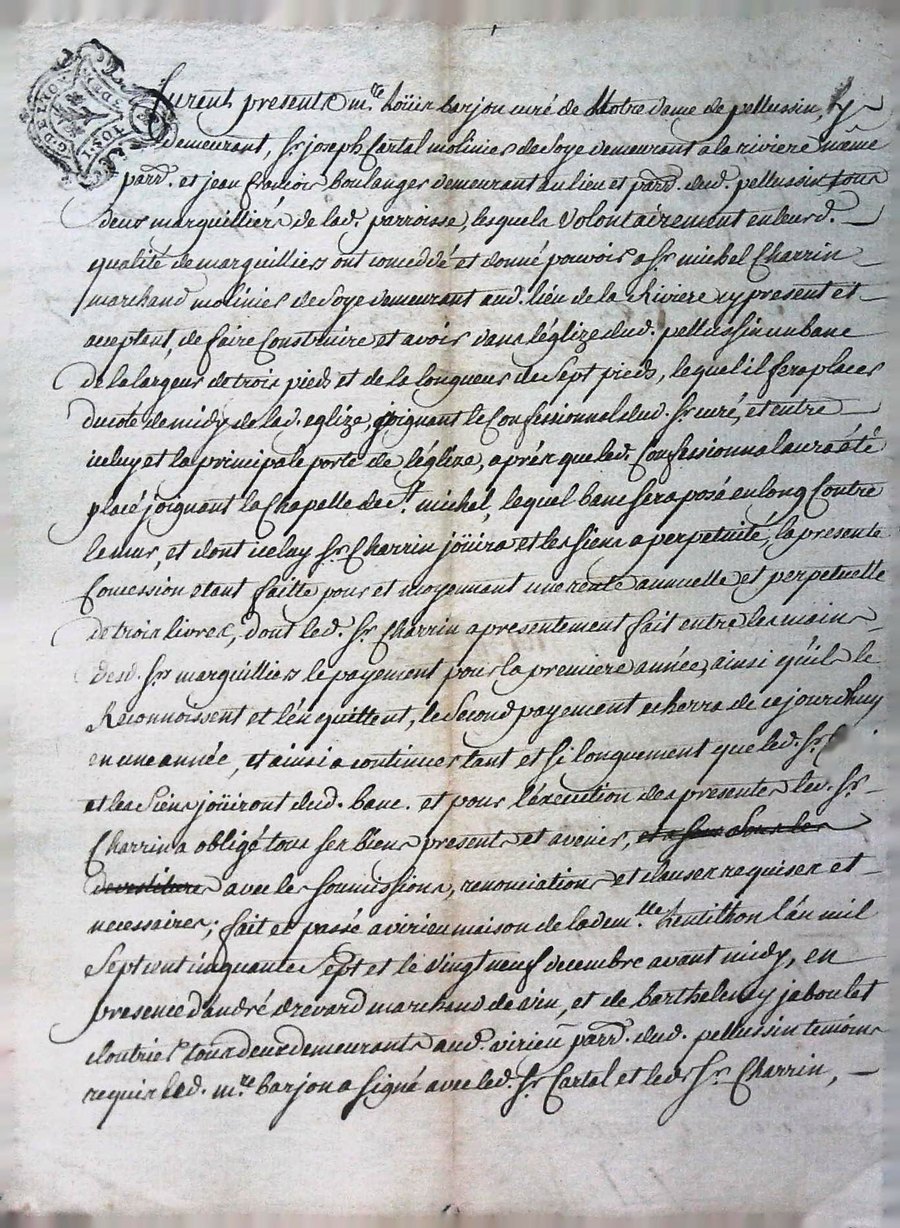 furent presents m.re Loüis barjon curé de Notre dame de pellussin, y
demeurant, Sr. joseph Cartal molinier de Soye demeurant a la riviere même
parr. et jean boulanger demeurant au lieu et parr. dud. pellussin tous
deux marguilliers de lad. parroisse, lesquels volontairement en leurd.
qualité de marguilliers ont concedé et donné pouvoir a Sr. michel Charrin
marchand molinier de Soye demeurant aud. lieu de la Riviere cy present et
acceptant, de faire Construire et avoir dans l'églize dud. pellussin un banc
de la largeur de trois pieds et de la longueur de Sept pieds, lequel il fera placer
du coté de midy de lad. eglize, joignant le Confessionnal dud. Sr. curé, et entre
iceluy et la principale porte de l'églize, aprés que led. Confessionnal aura été
placé joignant la Chapelle de St. michel, lequel banc sera posé en long Contre
le mur, et dont iceluy Sr. Charrin joüira et les siens a perpetuité, la presente
Concession etant faitte pour et moyennant une rente annuelle et perpetuelle
de trois livres, dont led. Sr. Charrin a presentement fait entre les mains
desd. Srs marguilliers le payement pour la premiere année, ainsi qu'ils le
Reconnoissent et l'en quittent, le Second payement echerra de ce jourd'huy
en une année, et ainsi a continuer tant et si longuement que led. Sr. C
et les Siens joüiront dud. banc. et pour l'éxecution des presentes led. Sr.
Charrin a obligé tous ses biens presents et avenir,
avec les soumissions, renonciations et clauses requises et
necessaires; fait et passé a virieu maison de lade.m.lle l'an mil
Sept cent cinquante Sept et le vingt neuf decembre avant midy, en
presence d'andré drevard marchand de vin, et de barthelemy jaboulet
cloutrier tous deux demeurants aud. virieu parr. dud. pellussin temoins
requis led. m.re barjon a signé avec led. Sr. Cartal et led. Sr. Charrin,